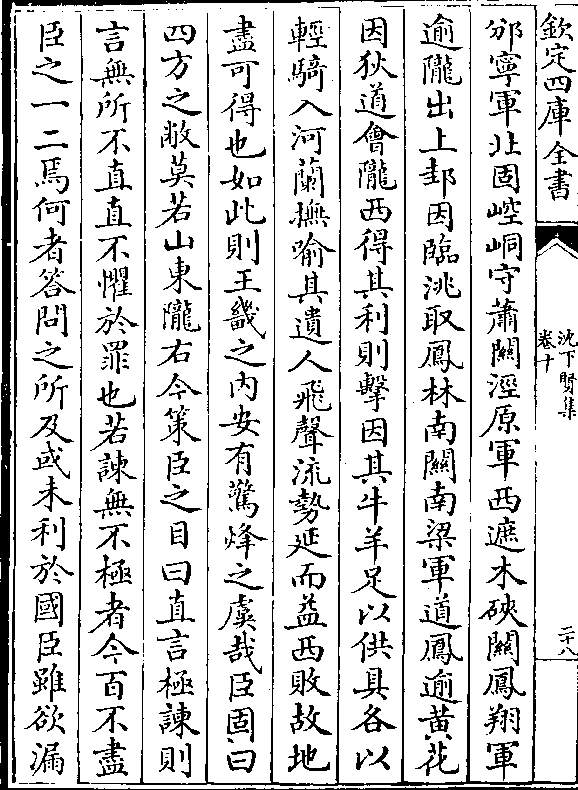 欽定四庫全書
沈下賢集
卷十
二十八
邠寧軍北固崆峒守蕭關涇原軍西遮木硤關鳳翔軍
逾隴出上邽因臨洮取鳳林南關南梁軍道鳳逾黃花
因狄道會隴西得其利則擊因其牛羊足以供具各以
輕騎入河蘭撫喻其遺人飛聲流勢延而益西敗故地
盡可得也如此則王畿之內安有驚烽之虞哉臣固曰
四方之敝莫若山東隴右今策臣之目曰直言極諫則
言無所不直直不懼於罪也若諫無不極者今百不盡
臣之一二焉何者答問之所及或未利於國臣雖欲漏